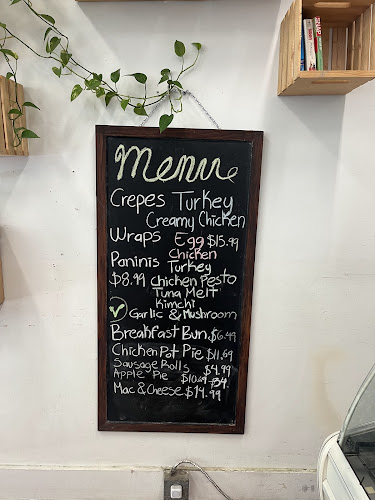 Menu
Crepes Turkey
Creamy Chicken
Wraps Egg $15.99
Chicken
Paninis Turkey
$8.99 Chicken Pesto
Tuna Melt
Kimchi
Garlic & Mushroom
Breakfast Bun $6.49
Chicken Pot Pie $11.69
Sausage Rolls $4.99
Apple Pie
Mac & Cheese $14.99